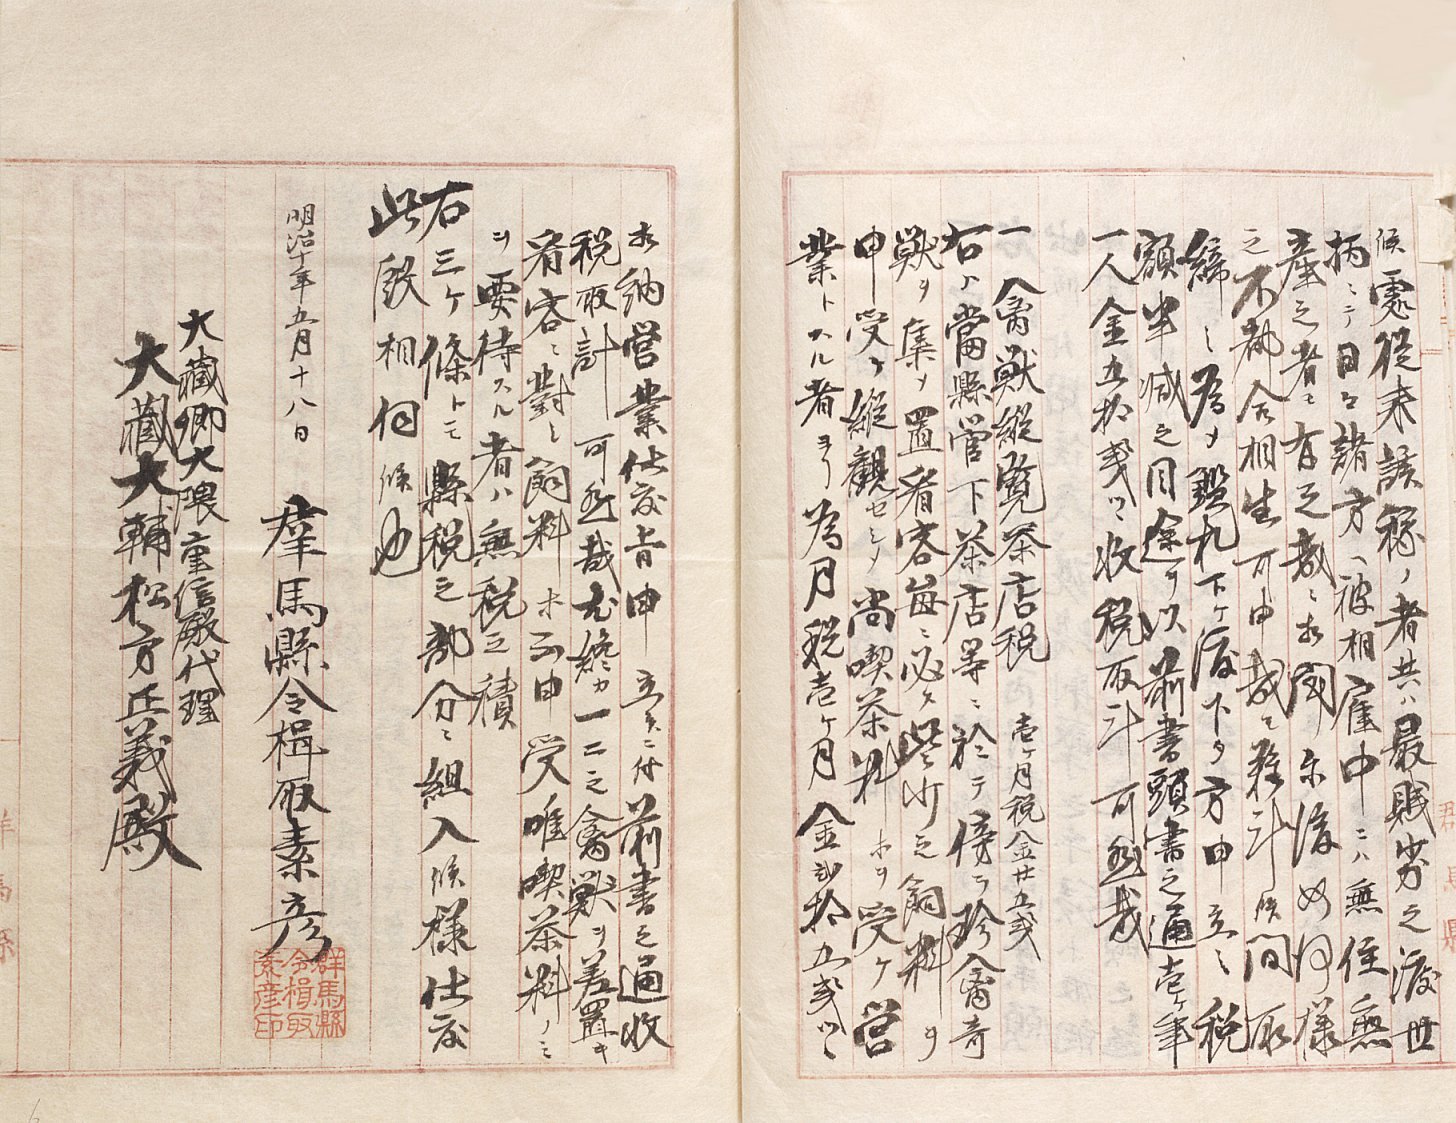 候處従来該稼ノ者共ハ最賎劣之渡世
柄ニテ日々諸方ヘ被相雇中ニハ無住無
産之者モ有之哉ニ相聞尓後如何様
之不都合相生可申哉モ難計候間取
締ノ為メ鑑札下ケ渡下タ方申立シ税
額半減之目途ヲ以前書頭書之通壱ケ年
一人金五拾銭ツヽ収税取計可然哉
一 禽獣縦覧茶店税 壱ケ月税金廿五銭
右ハ當縣管下茶店等ニ於テ傍ラ珍禽奇
獣ヲ集メ置看客毎ニ必ス些少之飼料ヲ
申受ケ縦観セシメ尚喫茶料ホヲ受ケ営
業トスル者ヨリ為月税壱ケ月金弐拾五銭ツヽ
相納営業仕度旨申立候ニ付前書之通収
税取計可然哉尤纔カ一二之禽獣ヲ差置キ
看客ニ對シ飼料ホ不申受唯喫茶料ノミ
ヲ要待スル者ハ無税之積
右三ケ條トモ縣税之部分ニ組入候様仕度
此段相伺候也
明治十年五月十八日
群馬縣令楫取素彦
群馬縣
令楫取
素彦印
大藏卿大隈重信殿代理
大藏大輔松方正義殿